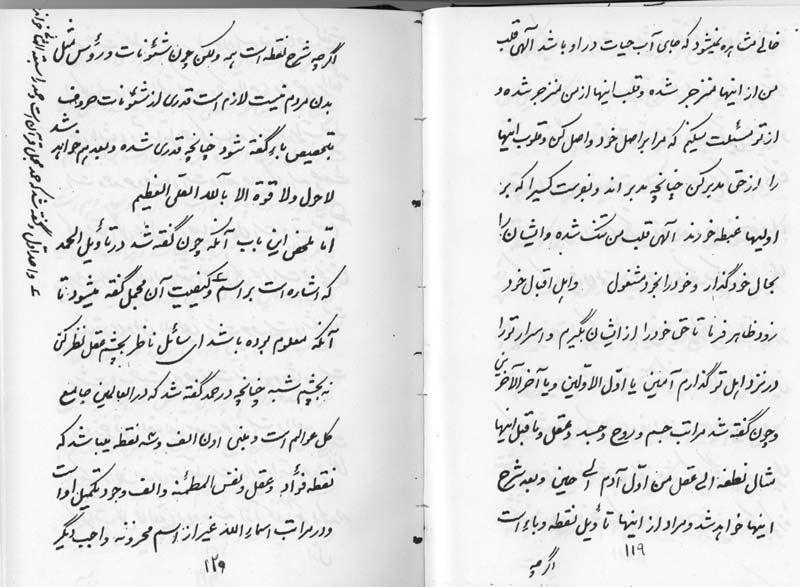 خالی مشاهره نمیشود که جای آب حیات در او باشد آلهی قلب
من از اینها منزجر شده و قلب اینها از من منزجر شده و
از تو مسئلت میکنم که مرا بر اصل خود واصل کن و قلوب اینها
را از حق مدبر کن چنانچه مدبر اند و نیست کسیرا که بر
اولیها غبطه خورند آلهی قلب من تنگ شده و ایشان را
بحال خود گذار و خود را بخود مشغول و اهل اقبال خود
زود ظاهر فرما تا حق خود را از ایشان بگیرم و اسرار تو را
در نزد اهل تو گذارم آمین یا اول الاولین و یا آخر الآخرین
و چون گفته شد مراتب جسم و روح و جسد و عقل و ما قبل اینها
مثال نطفه الی عقل من اول آدم الی حین و بعد شرح
اینها خواهد شد و مراد از اینها تأویل نقطه و باء است
۱۱۹
اگرچه
اگرچه شرح نقطه است همه ولکن چون شئونات و رؤس قبل
بدن مردم نیست لازم است قدری از شئونات حروف
بتخصیص باء گفته شود چنانچه قدری شده و بعد هم خواهد شد
لا حول و لا قوة الا بالله العلی العظیم
اما ملخص این باب آنکه چون گفته شد در تأویل الحمد
که اشاره است بر اسم و کیفیت آن مجمل گفته میشود تا
آنکه معلوم بوده باشد ای سائل ناظر بچشم عقل نظر کن
نه بچشم شبه چنانچه در حمد گفته شد که در العالمین جامع
کل عوالم است و مبنی اون الف و سه نقطه میباشد که
نقطه فؤاد و عقل و نفس المطمئنه و الف وجود تکمیل اوا است
و در مراتب اسماء الله غیر از اسم مخزونه واجب دیگر
۱۲۹